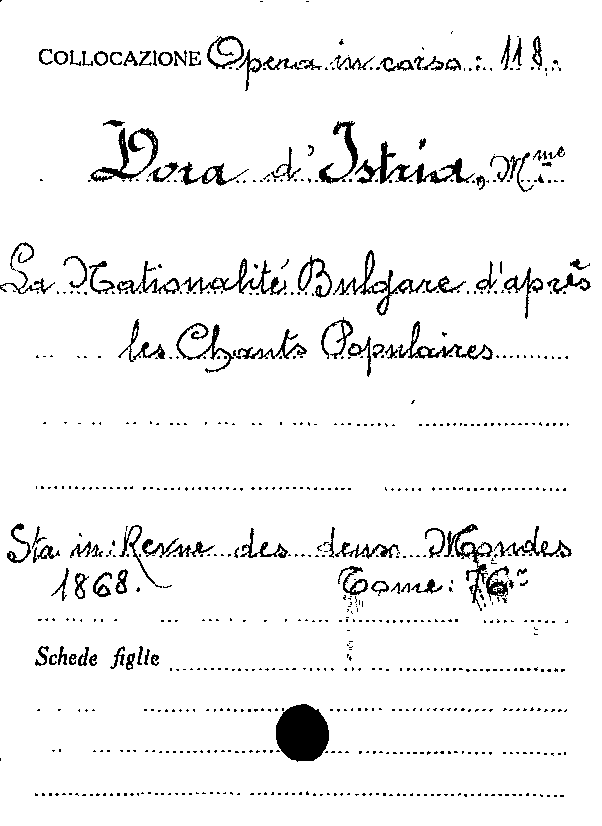 COLLOCAZIONE Opera in corso: 118.
Dora d'Istria, Mme
La Nationalité Bulgare d'après
les Chants Populaires
Sta in: Revue des deux Mondes
1868. Tome: 76.
Schede figlie